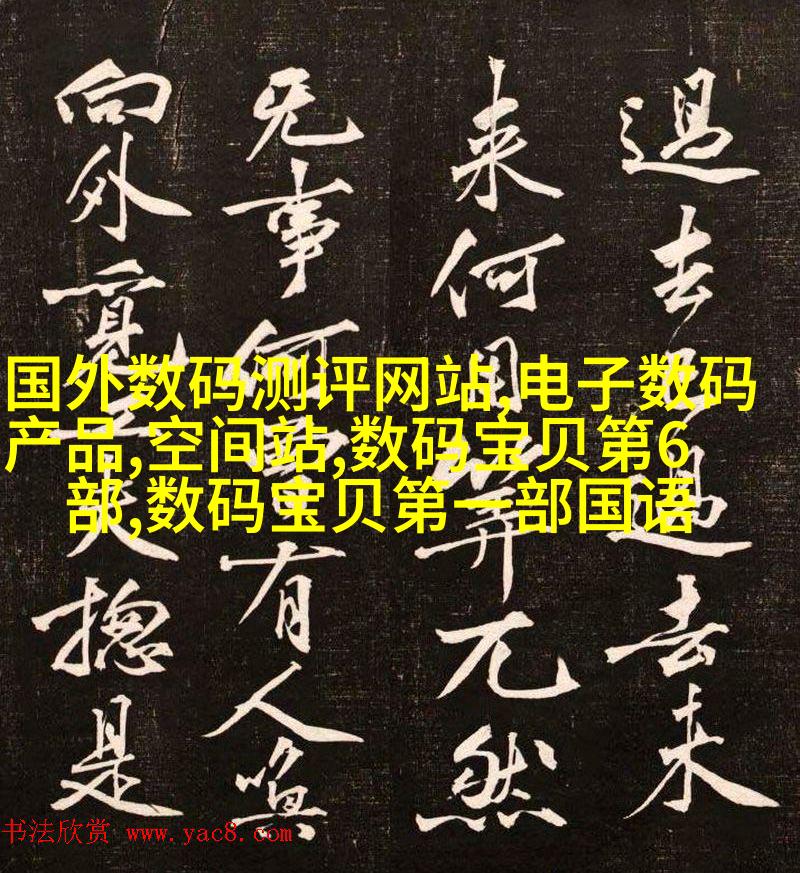 過去已過去未
来何用筭兀然
无事何曾有人喚
向外覓工夫揔是
国外数码测评网站,电子数码
产品,空间站,数码宝贝第6
部,数码宝贝第一部国语
书法欣赏 www.yac8.com